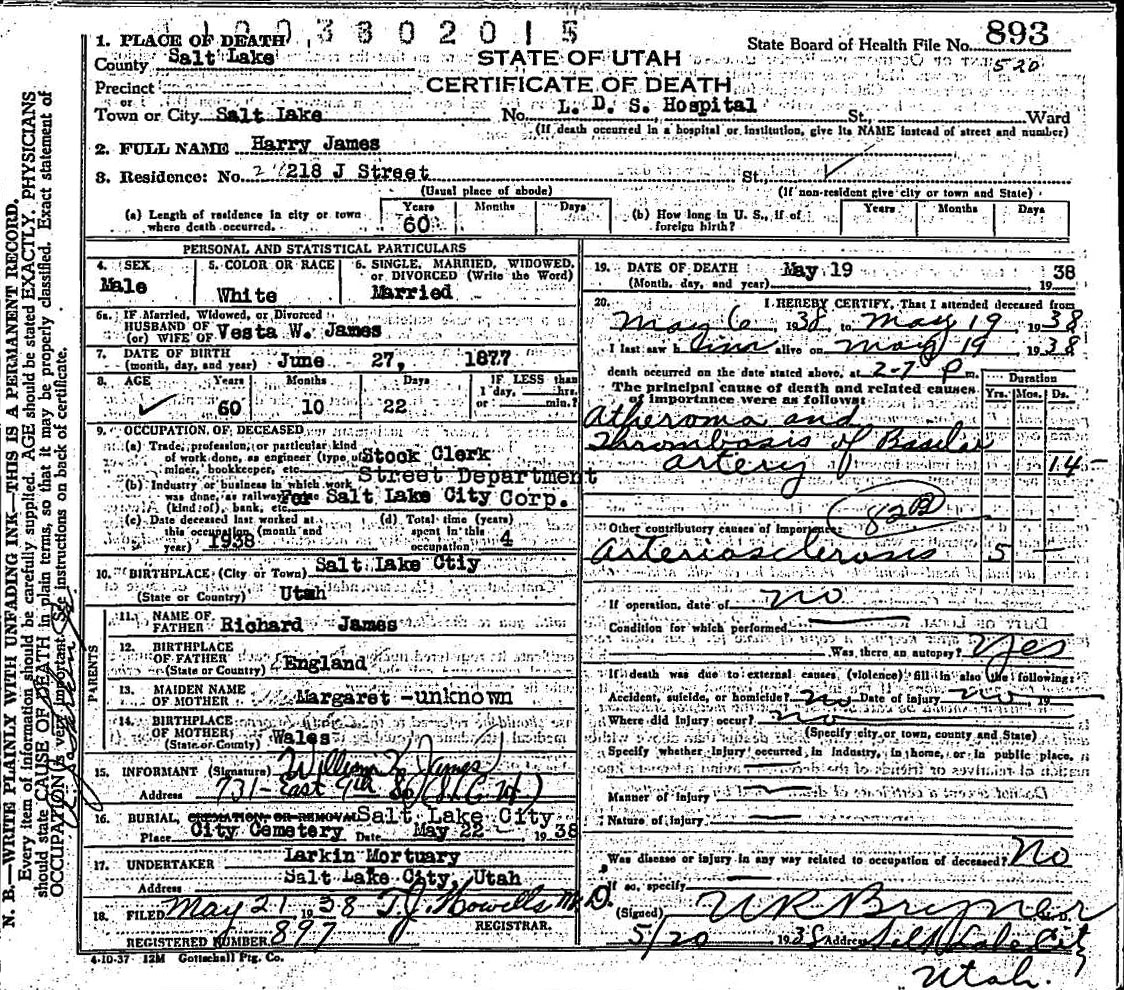 1 1 0 0 3 3 0 2 0 1 5
State Board of Health File No. 893
520
1. PLACE OF DEATH
County Salt Lake
STATE OF UTAH
CERTIFICATE OF DEATH
Precinct
or
Town or City Salt Lake No. L. D. S. Hospital St., Ward
(If death occurred in a hospital or institution, give its NAME instead of street and number)
2. FULL NAME Harry James
3. Residence: No. 218 J Street St.
(Usual place of abode) (If non-resident give city or town and State)
(a) Length of residence in city or town where death occurred. Years 60 Months Days
(b) How long in U. S., if of foreign birth? Years Months Days
PERSONAL AND STATISTICAL PARTICULARS
4. SEX Male
5. COLOR OR RACE White
6. SINGLE, MARRIED, WIDOWED, or DIVORCED (Write the Word) Married
6a. If Married, Widowed, or Divorced
HUSBAND OF
(or) WIFE OF Vesta W. James
7. DATE OF BIRTH
(month, day, and year) June 27, 1877
8. AGE Years 60 Months 10 Days 22
IF LESS than 1 day, hrs. or min.?
9. OCCUPATION OF DECEASED
(a) Trade, profession, or particular kind
of work done, as engineer (type of
miner, bookkeeper, etc. Stock Clerk
(b) Industry or business in which work
was done, as railway
(kind of), bank, etc. Street Department
For Salt Lake City Corp.
(c) Date deceased last worked at
this occupation (month and
year) 1938
(d) Total time (years)
spent in this
occupation 4
10. BIRTHPLACE (City or Town) Salt Lake Ctiy
(State or Country) Utah
PARENTS
11. NAME OF
FATHER Richard James
12. BIRTHPLACE
OF FATHER
(State or Country) England
13. MAIDEN NAME
OF MOTHER Margaret -unknown
14. BIRTHPLACE
OF MOTHER
(State or County) Wales
15. INFORMANT (Signature) William James
Address 731 - East 9th So (S.L.C. Ut)
16. BURIAL, CREMATION, OR REMOVAL Salt Lake City
Place City Cemetery Date May 22 1938
17. UNDERTAKER Larkin Mortuary
Address Salt Lake City, Utah
18. FILED May 21 1938 T.J. Howells M.D.
REGISTRAR.
REGISTERED NUMBER 897
4-10-37 12M Gottschall Ptg. Co.
19. DATE OF DEATH May 19 38
(Month, day, and year) 19
20. I HEREBY CERTIFY, That I attended deceased from
May 6, 1938, to May 19, 1938
I last saw him alive on May 19 1938
death occurred on the date stated above, at 2-7 P m.
The principal cause of death and related causes
of importance were as follows:
Duration
Yrs. Mos. Ds.
Atheroma and
Thrombosis of Basilar
artery 14 -
82B
Other contributory causes of importance:
Arteriosclerosis 5 -
If operation, date of no
Condition for which performed
Was there an autopsy? Yes
If death was due to external causes (violence) fill in also the following:
Accident, suicide, or homicide? no Date of injury no 19
Where did injury occur? no
(Specify city or town, county and State)
Specify whether injury occurred in industry, in home, or in public place.
Manner of injury
Nature of injury
Was disease or injury in any way related to occupation of deceased? No
If so, specify
(Signed) U R Bryner M. D.
5/20 1938 Address Salt Lake City
Utah.
N. B.—WRITE PLAINLY WITH UNFADING INK—THIS IS A PERMANENT RECORD.
Every item of information should be carefully supplied. AGE should be stated EXACTLY. PHYSICIANS
should state CAUSE OF DEATH in plain terms, so that it may be properly classified. Exact statement of
OCCUPATION is very important. See instructions on back of certificate.